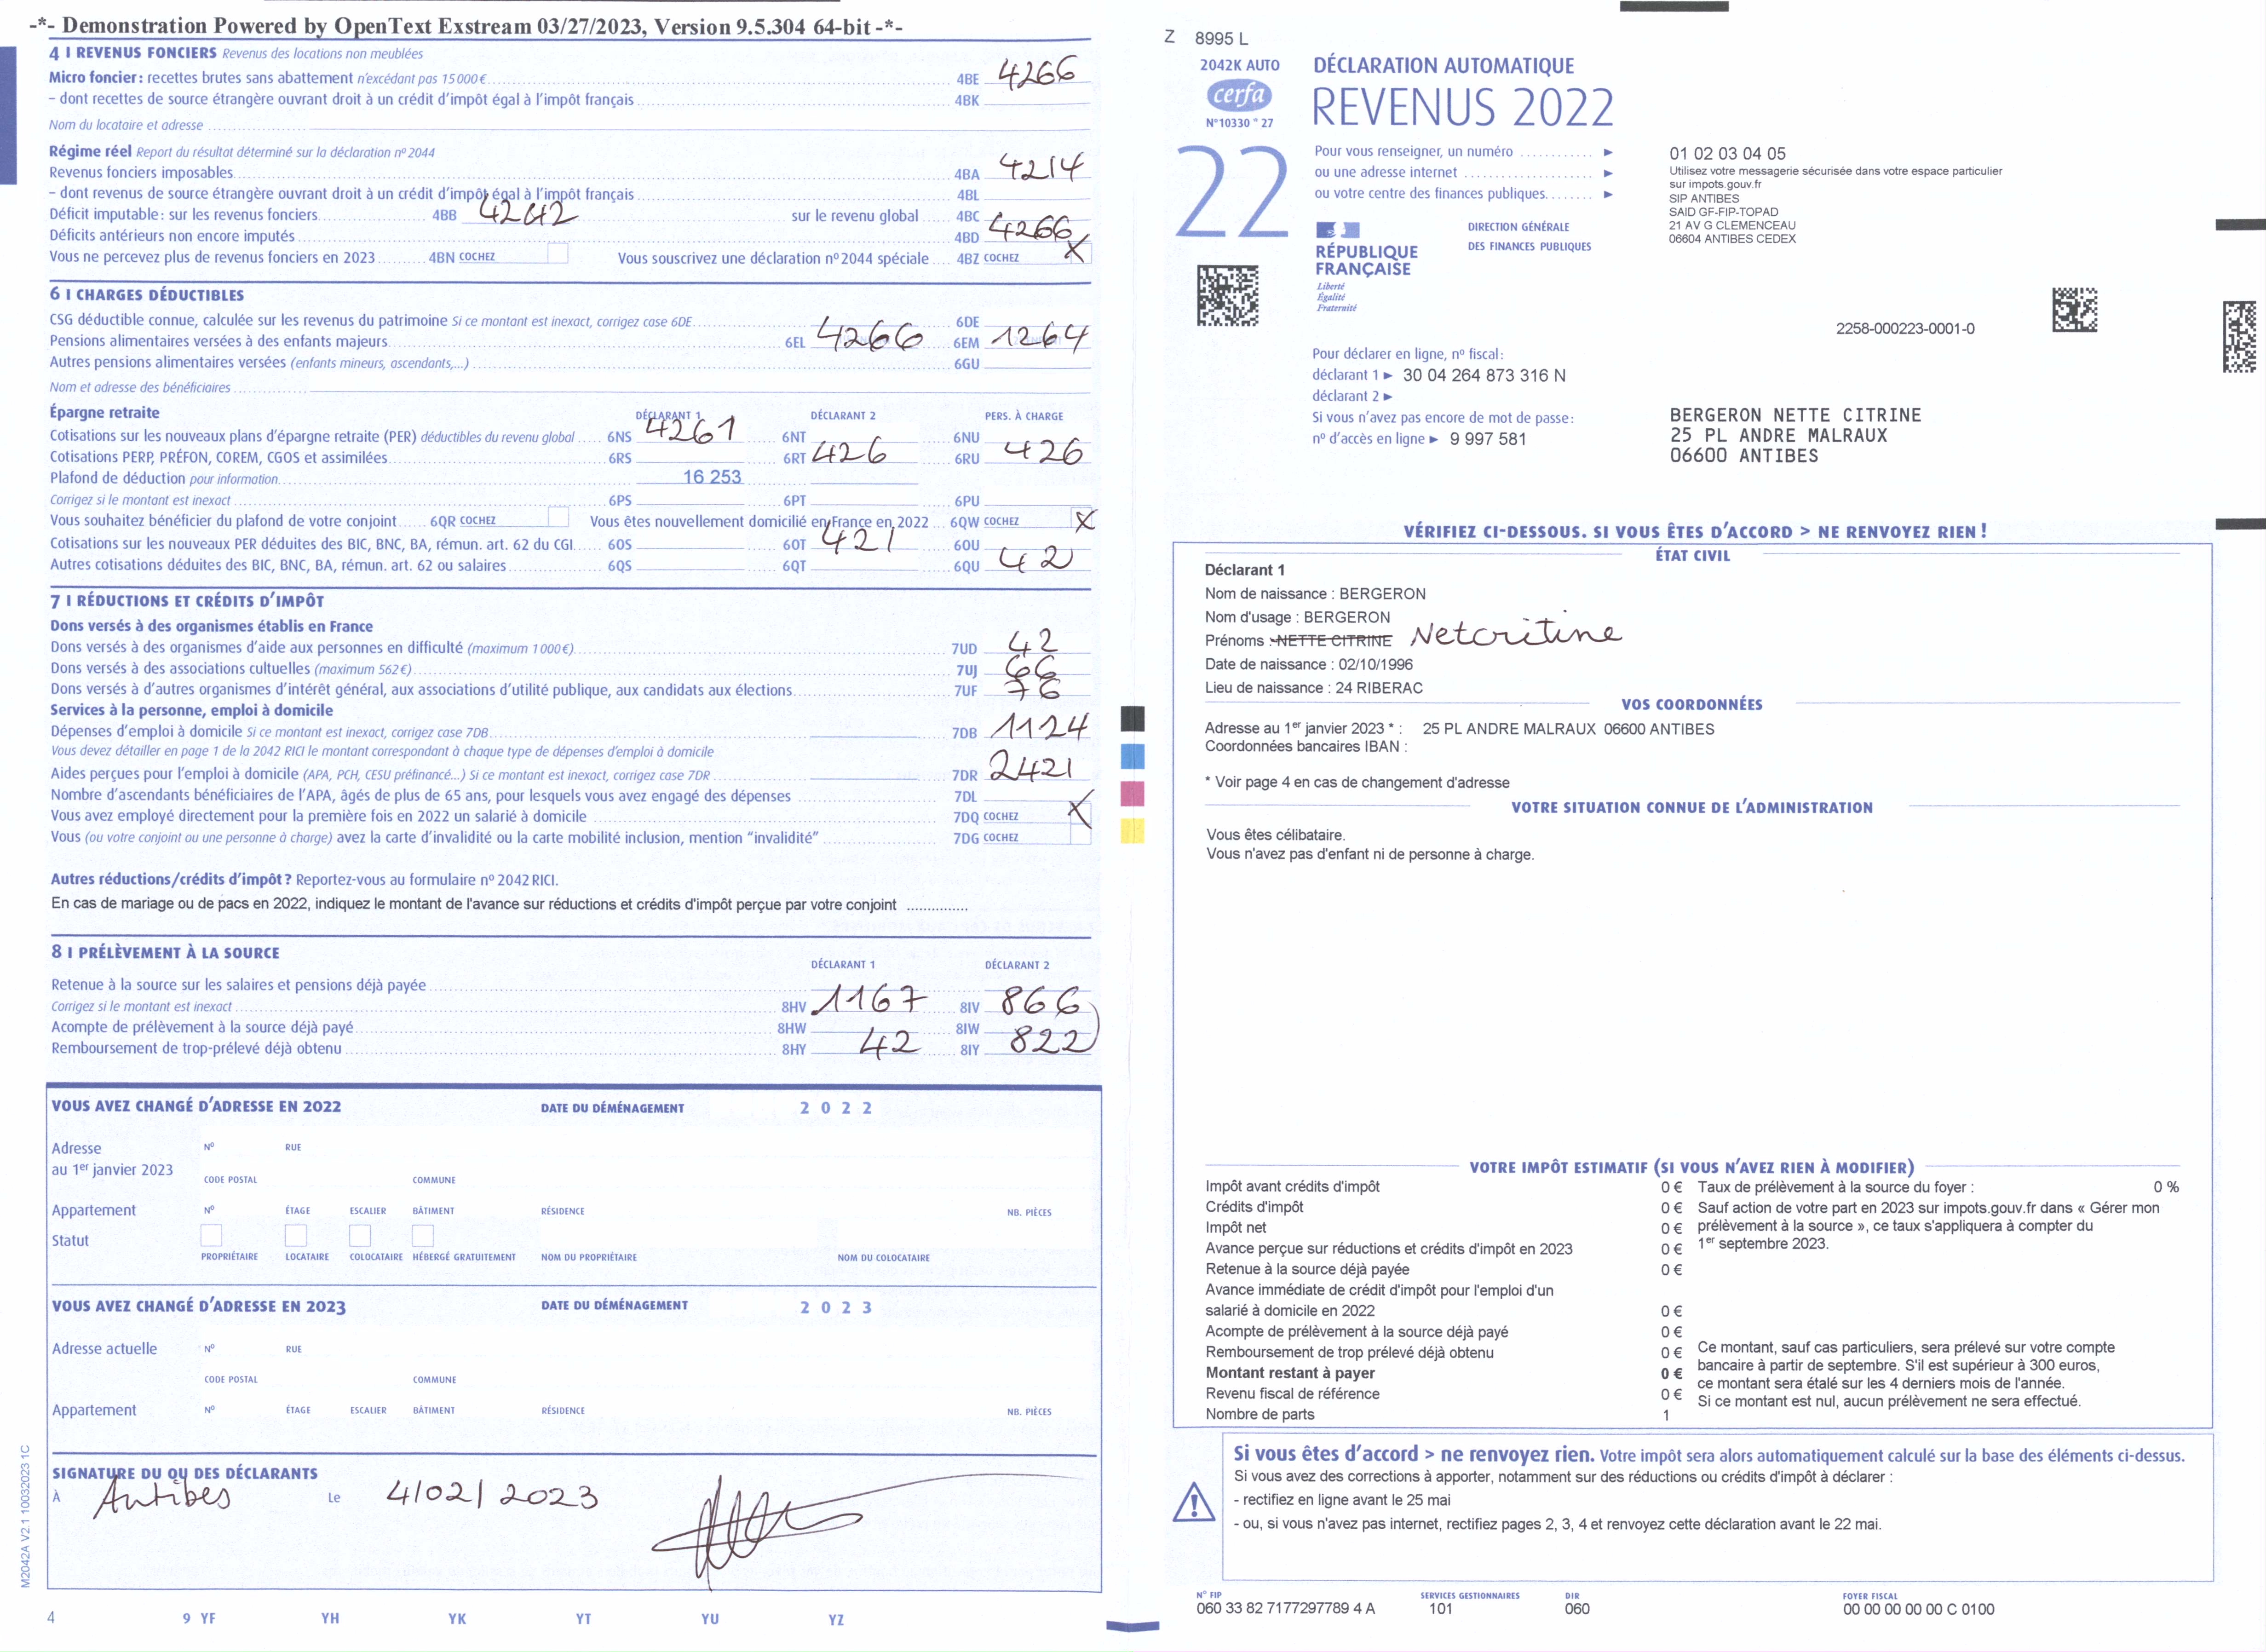 -*- Demonstration Powered by OpenText Exstream 03/27/2023, Version 9.5.304 64-bit -*-
4 I REVENUS FONCIERS Revenus des locations non meublées
Micro foncier : recettes brutes sans abattement n'excédant pas 15 000 € 4BE 4266
– dont recettes de source étrangère ouvrant droit à un crédit d'impôt égal à l'impôt français 4BK
Nom du locataire et adresse
Régime réel Report du résultat déterminé sur la déclaration nº 2044
Revenus fonciers imposables 4BA 4214
– dont revenus de source étrangère ouvrant droit à un crédit d'impôt égal à l'impôt français 4BL
Déficit imputable : sur les revenus fonciers 4BB 4242 sur le revenu global 4BC
Déficits antérieurs non encore imputés 4BD 4266
Vous ne percevez plus de revenus fonciers en 2023 4BN COCHEZ Vous souscrivez une déclaration nº 2044 spéciale 4BZ COCHEZ X
6 I CHARGES DÉDUCTIBLES
CSG déductible connue, calculée sur les revenus du patrimoine Si ce montant est inexact, corrigez case 6DE 6DE
Pensions alimentaires versées à des enfants majeurs 6EL 4266 6EM 1264
Autres pensions alimentaires versées (enfants mineurs, ascendants,...) 6GU
Nom et adresse des bénéficiaires
Épargne retraite DÉCLARANT 1 DÉCLARANT 2 PERS. À CHARGE
Cotisations sur les nouveaux plans d'épargne retraite (PER) déductibles du revenu global 6NS 4261 6NT 6NU
Cotisations PERP, PRÉFON, COREM, CGOS et assimilées 6RS 6RT 426 6RU 426
Plafond de déduction pour information 16 253
Corrigez si le montant est inexact 6PS 6PT 6PU
Vous souhaitez bénéficier du plafond de votre conjoint 6QR COCHEZ Vous êtes nouvellement domicilié en France en 2022 6QW COCHEZ X
Cotisations sur les nouveaux PER déduites des BIC, BNC, BA, rémun. art. 62 du CGI 6OS 6OT 421 6OU
Autres cotisations déduites des BIC, BNC, BA, rémun. art. 62 ou salaires 6QS 6QT 6QU 42
7 I RÉDUCTIONS ET CRÉDITS D'IMPÔT
Dons versés à des organismes établis en France
Dons versés à des organismes d'aide aux personnes en difficulté (maximum 1 000 €) 7UD 42
Dons versés à des associations cultuelles (maximum 562 €) 7UJ 66
Dons versés à d'autres organismes d'intérêt général, aux associations d'utilité publique, aux candidats aux élections 7UF 76
Services à la personne, emploi à domicile
Dépenses d'emploi à domicile Si ce montant est inexact, corrigez case 7DB 7DB 1124
Vous devez détailler en page 1 de la 2042 RICI le montant correspondant à chaque type de dépenses d'emploi à domicile
Aides perçues pour l'emploi à domicile (APA, PCH, CESU préfinancé...) Si ce montant est inexact, corrigez case 7DR 7DR 2421
Nombre d'ascendants bénéficiaires de l'APA, âgés de plus de 65 ans, pour lesquels vous avez engagé des dépenses 7DL
Vous avez employé directement pour la première fois en 2022 un salarié à domicile 7DQ COCHEZ X
Vous (ou votre conjoint ou une personne à charge) avez la carte d'invalidité ou la carte mobilité inclusion, mention "invalidité" 7DG COCHEZ
Autres réductions/crédits d'impôt ? Reportez-vous au formulaire nº 2042 RICI.
En cas de mariage ou de pacs en 2022, indiquez le montant de l'avance sur réductions et crédits d'impôt perçue par votre conjoint ..............
8 I PRÉLÈVEMENT À LA SOURCE
DÉCLARANT 1 DÉCLARANT 2
Retenue à la source sur les salaires et pensions déjà payée
Corrigez si le montant est inexact 8HV 1167 8IV 866
Acompte de prélèvement à la source déjà payé 8HW 8IW
Remboursement de trop-prélevé déjà obtenu 8HY 42 8IY 822
VOUS AVEZ CHANGÉ D'ADRESSE EN 2022 DATE DU DÉMÉNAGEMENT 2 0 2 2
Adresse Nº RUE
au 1er janvier 2023
CODE POSTAL COMMUNE
Appartement Nº ÉTAGE ESCALIER BÂTIMENT RÉSIDENCE NB. PIÈCES
Statut
PROPRIÉTAIRE LOCATAIRE COLOCATAIRE HÉBERGÉ GRATUITEMENT NOM DU PROPRIÉTAIRE NOM DU COLOCATAIRE
VOUS AVEZ CHANGÉ D'ADRESSE EN 2023 DATE DU DÉMÉNAGEMENT 2 0 2 3
Adresse actuelle Nº RUE
CODE POSTAL COMMUNE
Appartement Nº ÉTAGE ESCALIER BÂTIMENT RÉSIDENCE NB. PIÈCES
SIGNATURE DU OU DES DÉCLARANTS
À Antibes Le 4/02/2023
M2042A V2.1 10032023 1C
4 9 YF YH YK YT YU YZ
Z 8995 L
2042K AUTO
cerfa
N°10330 * 27
22
DÉCLARATION AUTOMATIQUE
REVENUS 2022
Pour vous renseigner, un numéro ........... ► 01 02 03 04 05
ou une adresse internet ................... ► Utilisez votre messagerie sécurisée dans votre espace particulier
sur impots.gouv.fr
ou votre centre des finances publiques........ ► SIP ANTIBES
SAID GF-FIP-TOPAD
21 AV G CLEMENCEAU
06604 ANTIBES CEDEX
RÉPUBLIQUE
FRANÇAISE
Liberté
Égalité
Fraternité
DIRECTION GÉNÉRALE
DES FINANCES PUBLIQUES
2258-000223-0001-0
Pour déclarer en ligne, nº fiscal :
déclarant 1 ► 30 04 264 873 316 N
déclarant 2 ►
Si vous n'avez pas encore de mot de passe :
nº d'accès en ligne ► 9 997 581
BERGERON NETTE CITRINE
25 PL ANDRE MALRAUX
06600 ANTIBES
VÉRIFIEZ CI-DESSOUS. SI VOUS ÊTES D'ACCORD > NE RENVOYEZ RIEN !
ÉTAT CIVIL
Déclarant 1
Nom de naissance : BERGERON
Nom d'usage : BERGERON
Prénoms : NETTE CITRINE Netcritine
Date de naissance : 02/10/1996
Lieu de naissance : 24 RIBERAC
VOS COORDONNÉES
Adresse au 1er janvier 2023 * : 25 PL ANDRE MALRAUX 06600 ANTIBES
Coordonnées bancaires IBAN :
* Voir page 4 en cas de changement d'adresse
VOTRE SITUATION CONNUE DE L'ADMINISTRATION
Vous êtes célibataire.
Vous n'avez pas d'enfant ni de personne à charge.
VOTRE IMPÔT ESTIMATIF (SI VOUS N'AVEZ RIEN À MODIFIER)
Impôt avant crédits d'impôt 0 €
Crédits d'impôt 0 €
Impôt net 0 €
Avance perçue sur réductions et crédits d'impôt en 2023 0 €
Retenue à la source déjà payée 0 €
Avance immédiate de crédit d'impôt pour l'emploi d'un
salarié à domicile en 2022 0 €
Acompte de prélèvement à la source déjà payé 0 €
Remboursement de trop prélevé déjà obtenu 0 €
Montant restant à payer 0 €
Revenu fiscal de référence 0 €
Nombre de parts 1
Taux de prélèvement à la source du foyer : 0 %
Sauf action de votre part en 2023 sur impots.gouv.fr dans « Gérer mon
prélèvement à la source », ce taux s'appliquera à compter du
1er septembre 2023.
Ce montant, sauf cas particuliers, sera prélevé sur votre compte
bancaire à partir de septembre. S'il est supérieur à 300 euros,
ce montant sera étalé sur les 4 derniers mois de l'année.
Si ce montant est nul, aucun prélèvement ne sera effectué.
Si vous êtes d'accord > ne renvoyez rien. Votre impôt sera alors automatiquement calculé sur la base des éléments ci-dessus.
Si vous avez des corrections à apporter, notamment sur des réductions ou crédits d'impôt à déclarer :
- rectifiez en ligne avant le 25 mai
- ou, si vous n'avez pas internet, rectifiez pages 2, 3, 4 et renvoyez cette déclaration avant le 22 mai.
N° FIP SERVICES GESTIONNAIRES DIR FOYER FISCAL
060 33 82 7177297789 4 A 101 060 00 00 00 00 00 C 0100